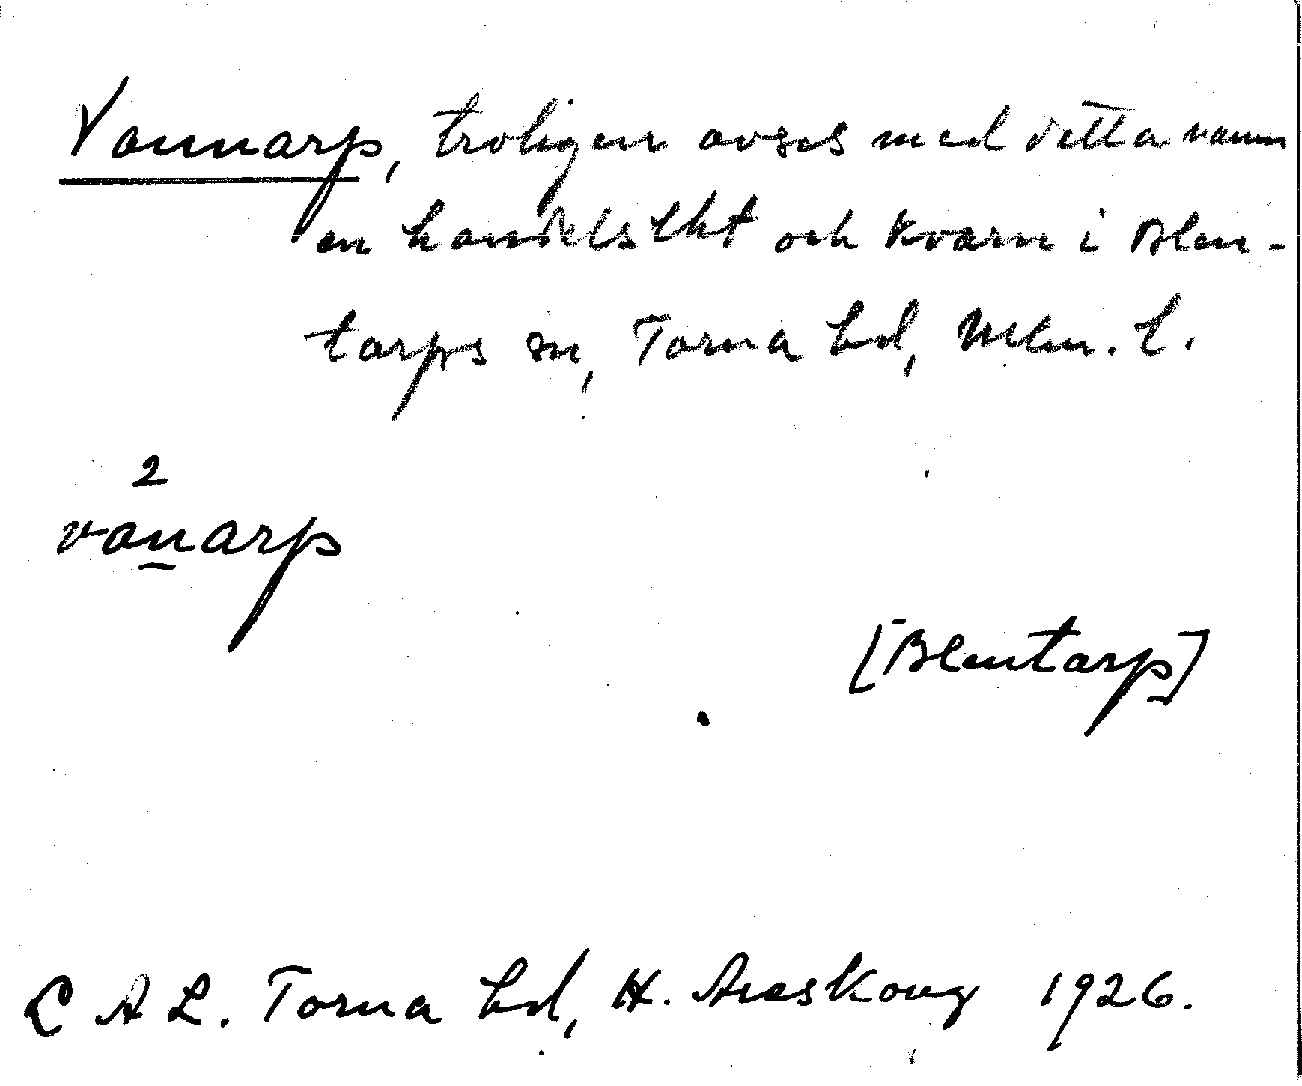 Vannarp, troligen avses med detta namn
en handelslht och kvarn i Blen-
tarps sn, Torna hd, Mlm. l.
2
vanarp
[Blentarp]
L A L. Torna hd, H. Areskoug 1926.